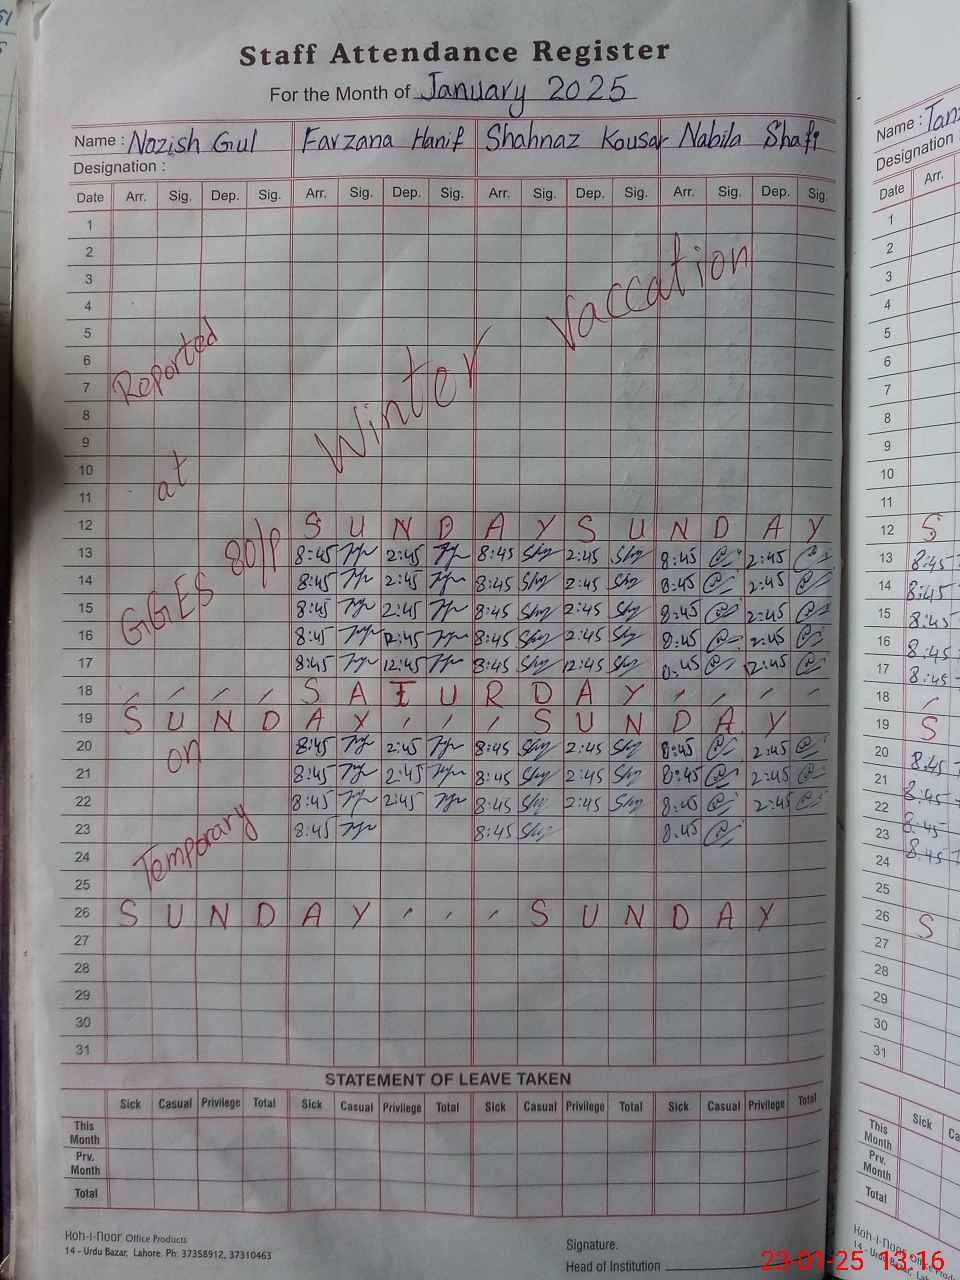 Staff Attendance Register
For the Month of January 2025
Name : Nazish Gul Farzana Hanif Shahnaz Kousar Nabila Shafi
Designation :
Date Arr. Sig. Dep. Sig. Arr. Sig. Dep. Sig. Arr. Sig. Dep. Sig. Arr. Sig. Dep. Sig.
1
2
3
4
5
6
7
8
9
10
11
Winter Vaccation
Reported
at
GGES 80/P
on
Temporary
12 S U N D A Y S U N D A Y
13 8:45 2:45 8:45 2:45 8:45 2:45
14 8:45 2:45 8:45 2:45 8:45 2:45
15 8:45 2:45 8:45 2:45 8:45 2:45
16 8:45 12:45 8:45 2:45 8:45 2:45
17 8:45 12:45 8:45 12:45 8:45 12:45
18 S A T U R D A Y
19 S U N D A Y S U N D A Y
20 8:45 2:45 8:45 2:45 8:45 2:45
21 8:45 2:45 8:45 2:45 8:45 2:45
22 8:45 2:45 8:45 2:45 8:45 2:45
23 8:45 8:45 8:45
24
25
26 S U N D A Y S U N D A Y
27
28
29
30
31
STATEMENT OF LEAVE TAKEN
Sick Casual Privilege Total Sick Casual Privilege Total Sick Casual Privilege Total Sick Casual Privilege Total
This
Month
Prv.
Month
Total
Hoh-i-noor Office Products
14 - Urdu Bazar, Lahore. Ph: 37358912, 37310463
Signature.
Head of Institution
Name :
Designation :
Date Arr.
1
2
3
4
5
6
7
8
9
10
11
12 S
13 8:45
14 8:45
15 8:45
16 8:45
17 8:45
18
19 S
20 8:45
21 8:45
22 8:45
23 8:45
24
25
26 S
27
28
29
30
31
Sick
This
Month
Prv.
Month
Total
Hoh-i-noor
14 - Urdu Bazar,
23-01-25 13:16